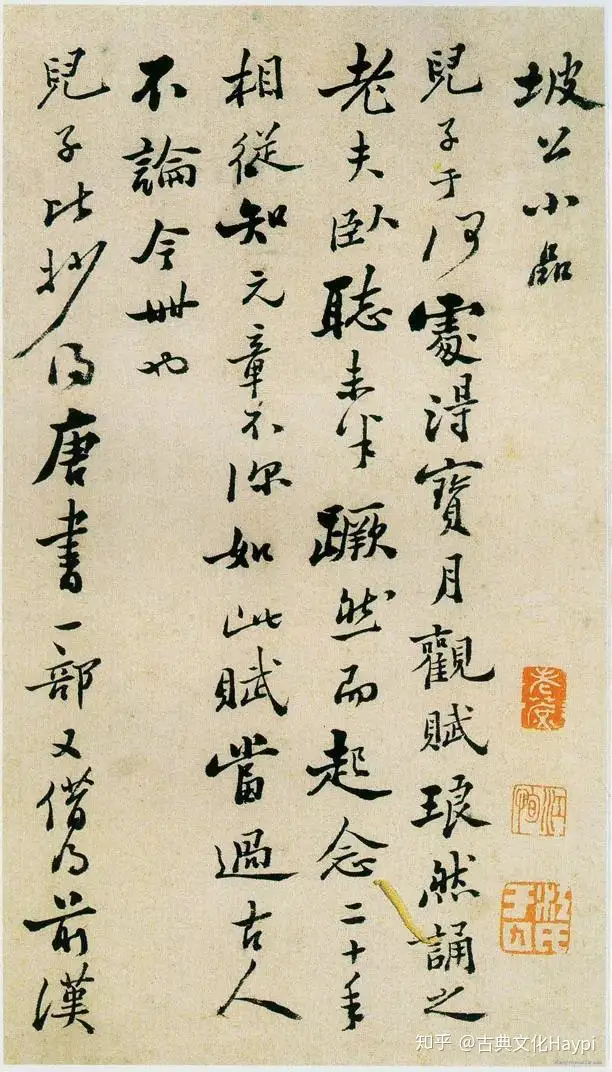 坡公小品
兒子于何處得寶月觀賦琅然誦之
老夫臥聽未半蹶然而起念二十年
相從知元章不深如此賦當過古人
不論今世也
兒子比抄得唐書一部又借得前漢
知乎 @古典文化Haypi